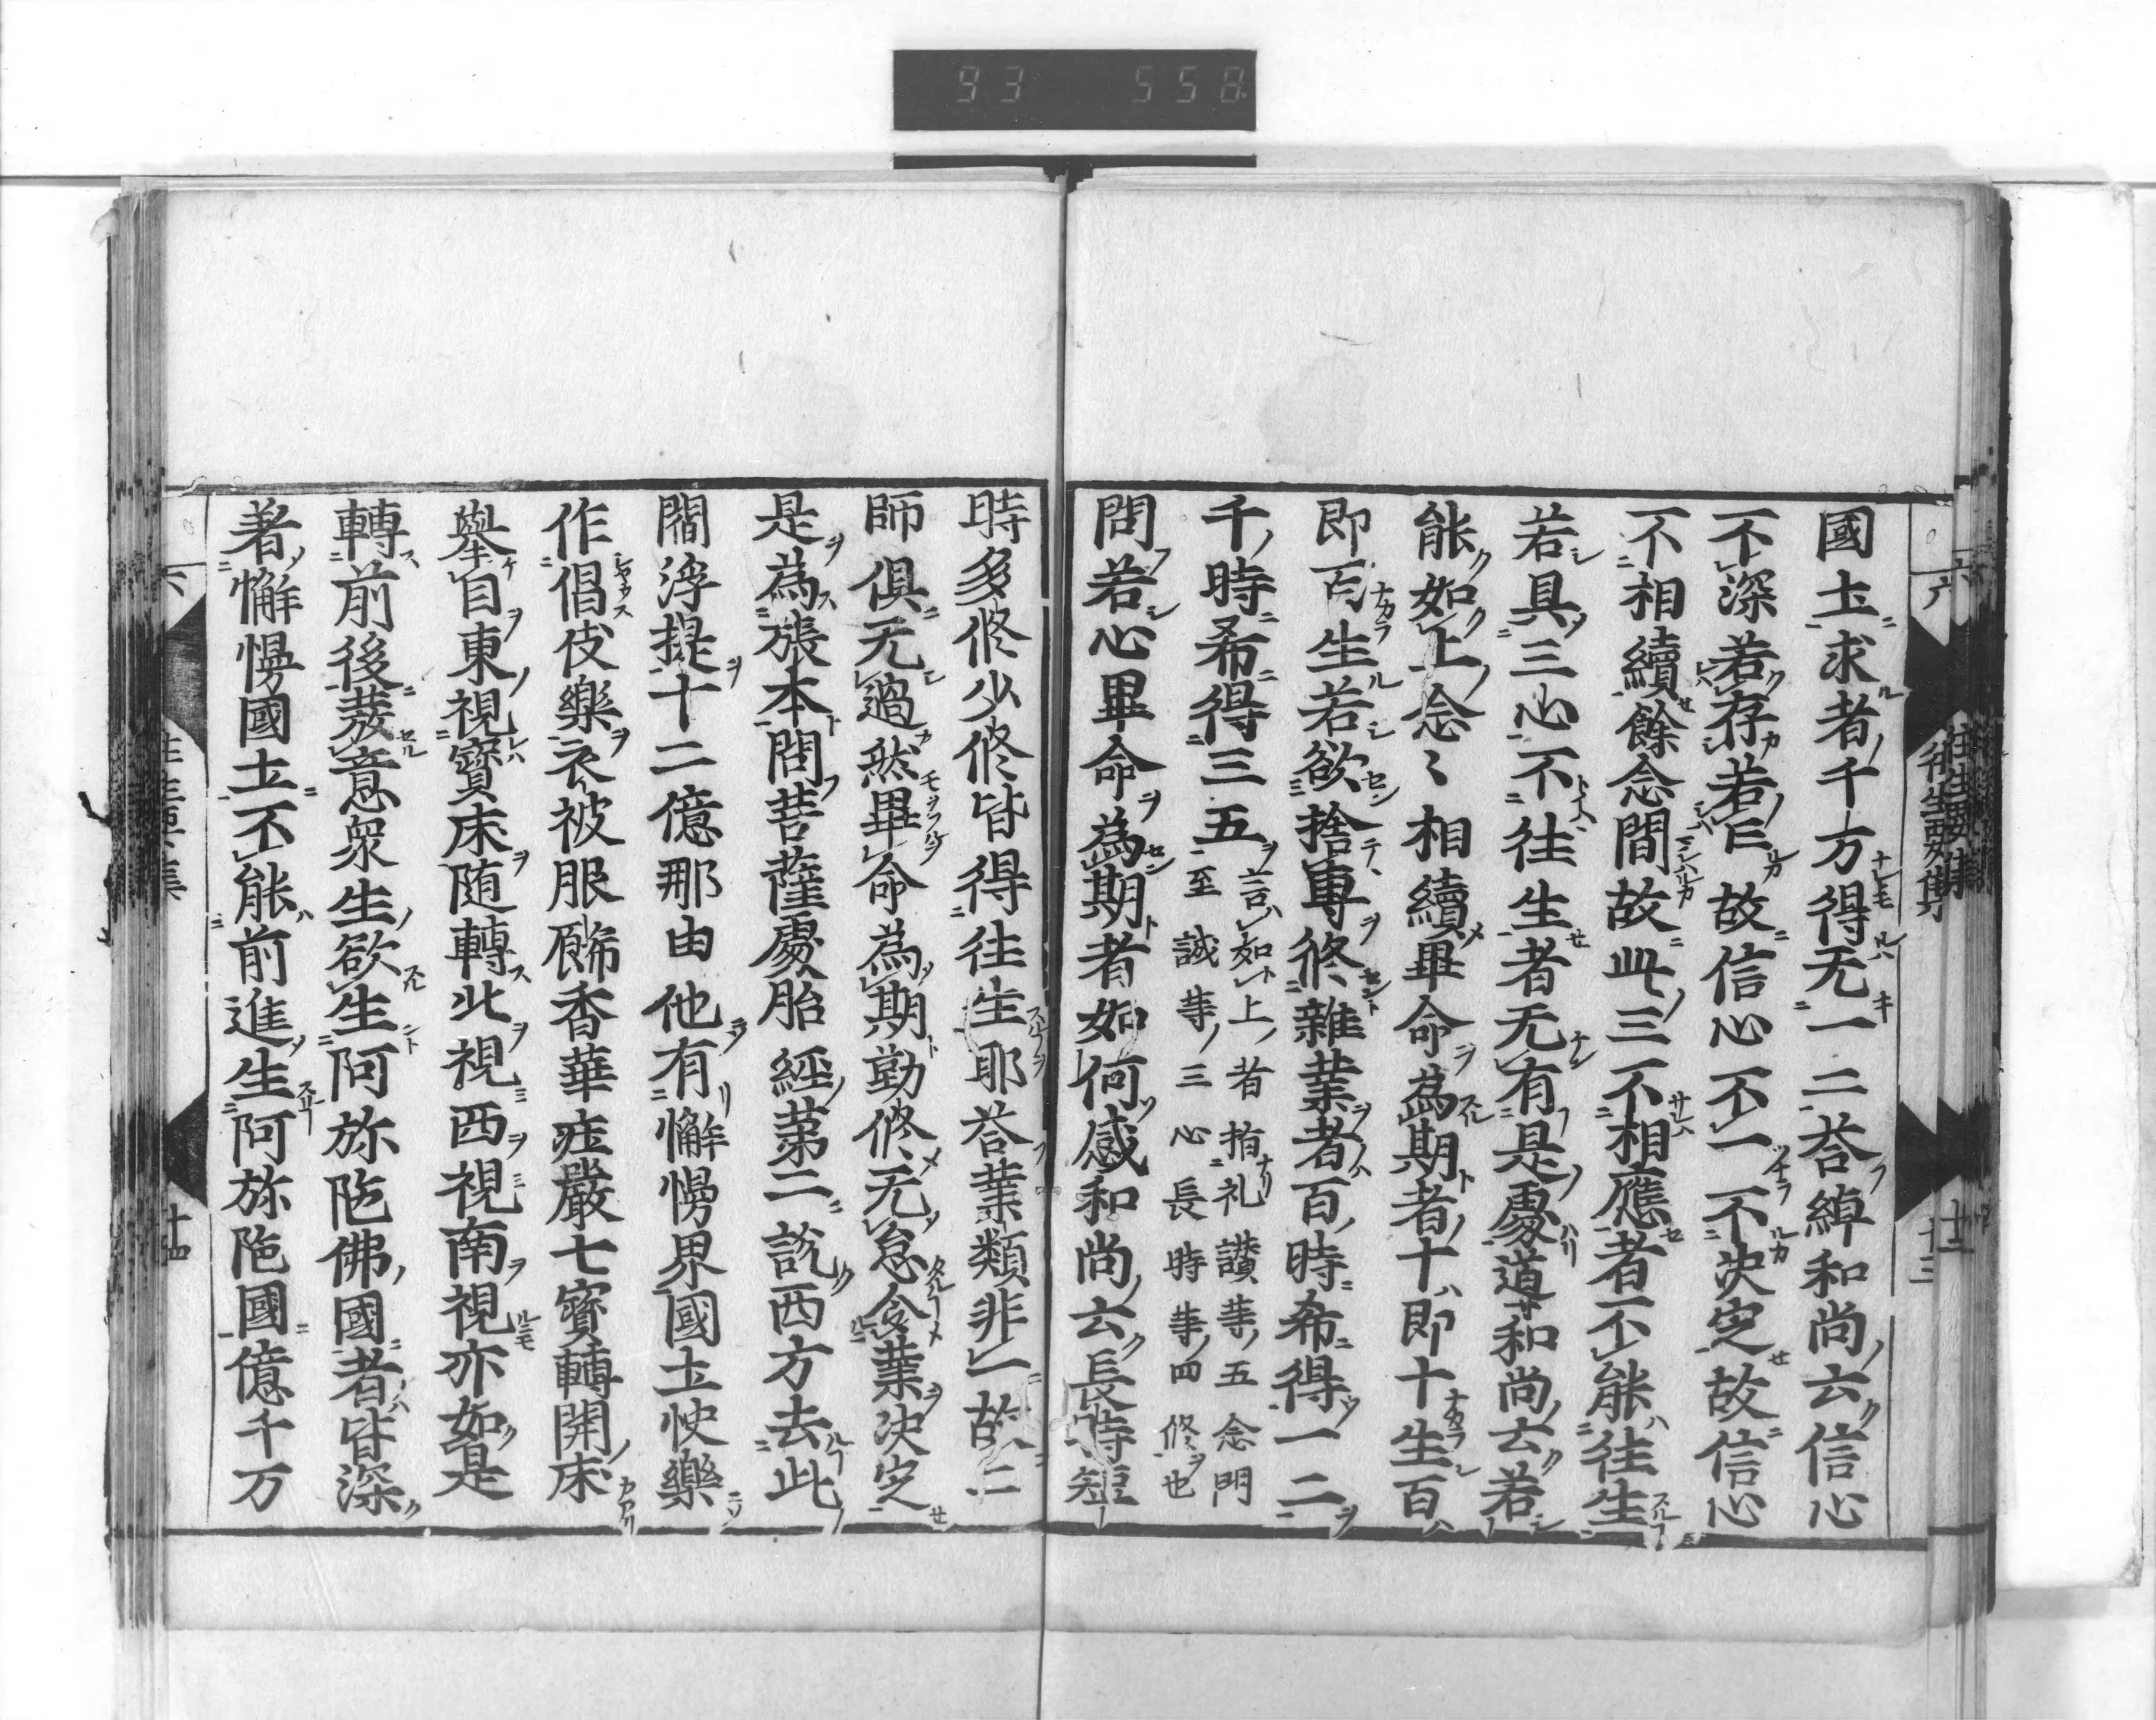 93 558
國土求者千万得无一二荅綽和尚云信心
不深若存若亡故信心不一不决定故信心
不相續餘念間故此三不相應者不能往生
若具三心不往生者无有是處道和尚云若
能如上念〻相續畢命為期者十即十生百
即百生若欲捨專修雜業者百時希得一二
千時希得三五言如上者指礼讃等五念門
至誠等三心長時等四修也
問若心畢命為期者如何感和尚云長時短
時多修少修皆得往生耶荅業類非一故二
師俱无過然畢命為期勤修无怠令業决定
是為張本問菩薩處胎經第二說西方去此
閻浮提十二億那由他有懈慢界國土快樂
作倡伎樂衣被服飾香華莊嚴七寶轉開床
舉自東視寶床随轉北視西視南視亦如是
轉前後發意衆生欲生阿弥陀佛國者皆深
著懈慢國土不能前進生阿弥陀國億千万